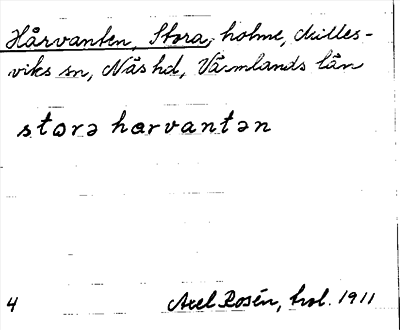 Hårvanten, Stora, holme, Milles-
viks sn, Näs hd, Värmlands län
storə harvantən
4 Axel Rosén, hol. 1911